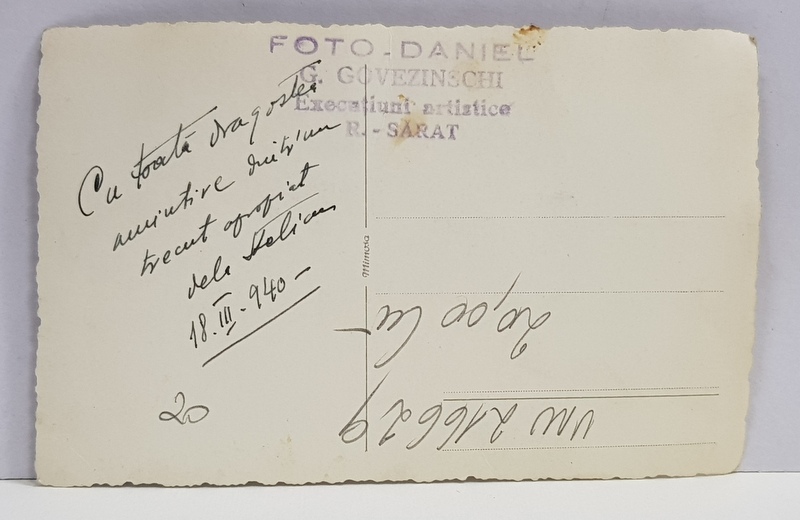 FOTO-DANIEL
G. GOVEZINSCHI
Execuțiuni artistice
R.-SARAT
Cu toată dragostea
amintire dintr'un
trecut apropiat
dela Stelian
18.III.-940-
Mimosa
20
20,00 lei
VNW 216629